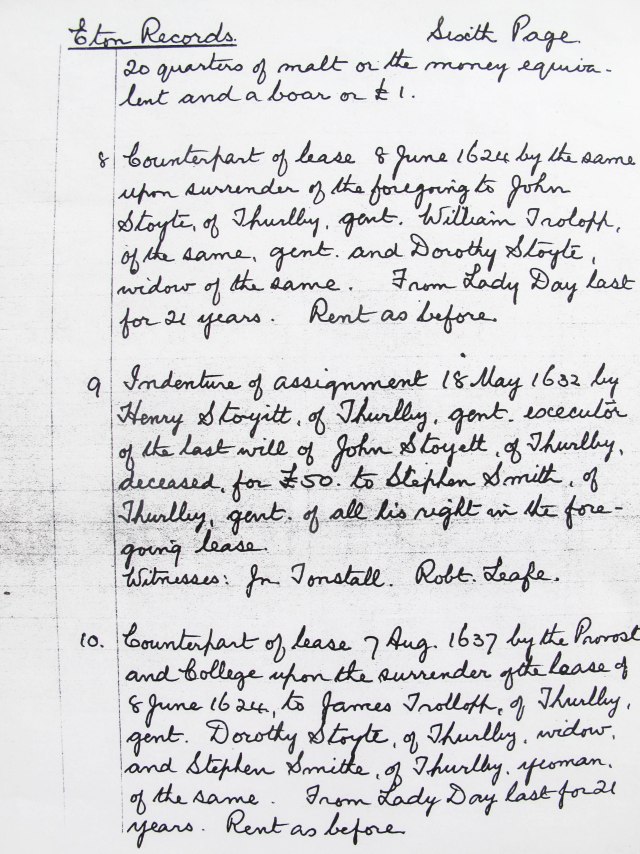 Eton Records. Sixth Page.
20 quarters of malt or the money equiva-
lent and a boar or £1.
8 Counterpart of lease 8 June 1624 by the same
upon surrender of the foregoing to John
Stoyte, of Thurlby, gent. William Trolopp,
of the same, gent. and Dorothy Stoyte,
widow of the same. From Lady Day last
for 21 years. Rent as before.
9 Indenture of assignment 18 May 1632 by
Henry Stoyitt, of Thurlby, gent. executor
of the last will of John Stoyett, of Thurlby,
deceased, for £50. to Stephen Smith, of
Thurlby, gent. of all his right in the fore-
going lease.
Witnesses: Jn Tonstall. Robt. Leafe.
10. Counterpart of lease 7 Aug. 1637 by the Provost
and College upon the surrender of the lease of
8 June 1624, to James Trollopp, of Thurlby,
gent. Dorothy Stoyte, of Thurlby, widow,
and Stephen Smithe, of Thurlby, yeoman,
of the same. From Lady Day last for 21
years. Rent as before.